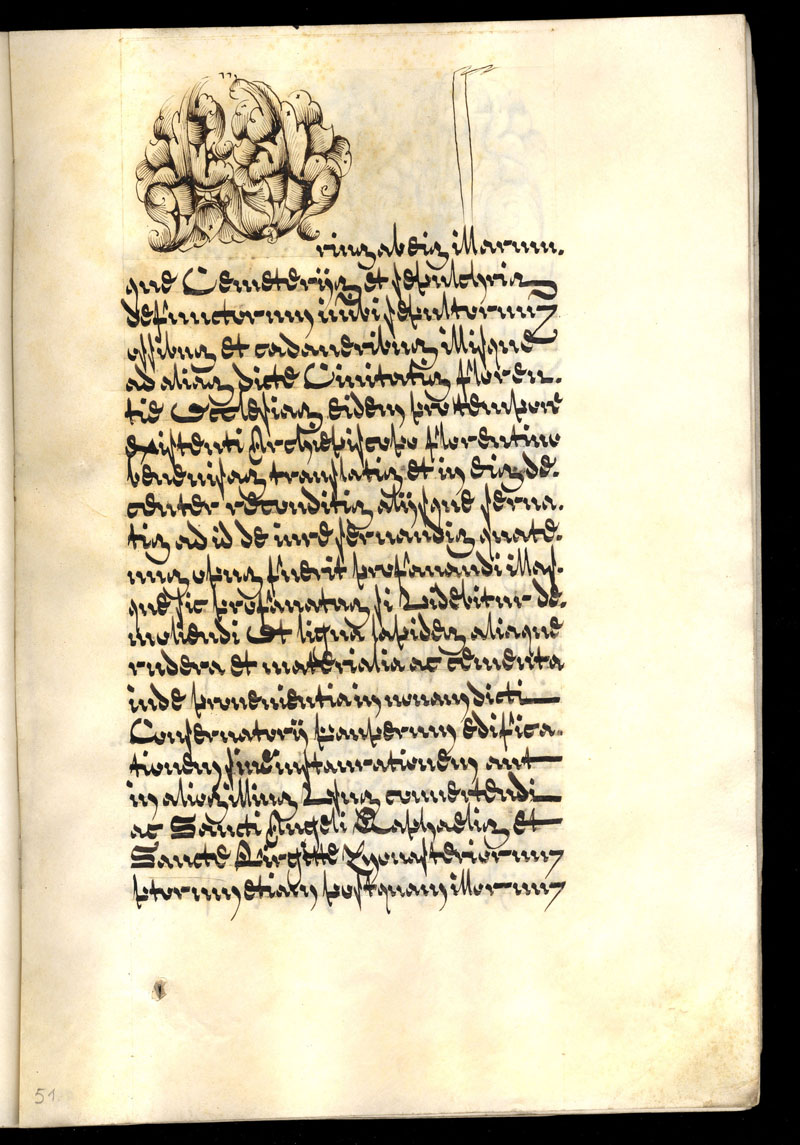 rius ab eis illarum.
que Cemeterijs et sepulchris
defunctorum inibi sepultorum
ossibus et cadaveribus illisque
ad alias dicte Civitatis floren.
tie Ecclesias eidem pro tempore
existenti Archiepiscopo florentino
benevisas translatis et in eis de.
center reconditis alijsque serva.
tis ad id de iure servandis quate.
nus opus fuerit profanandi illas.
que sic profanatas si Videbitur de.
moliendi Et ligna lapides aliaque
rudera et materialia ac cementa
inde provenientia in novam dicti
Conservatorij pauperum edifica.
tionem sive instaurationem aut
in alios illius Usus convertendi
ac Sancti Angeli Raphaelis et
Sancte Birgitte Monasteriorum
ptorum etiam postquam illorum
51